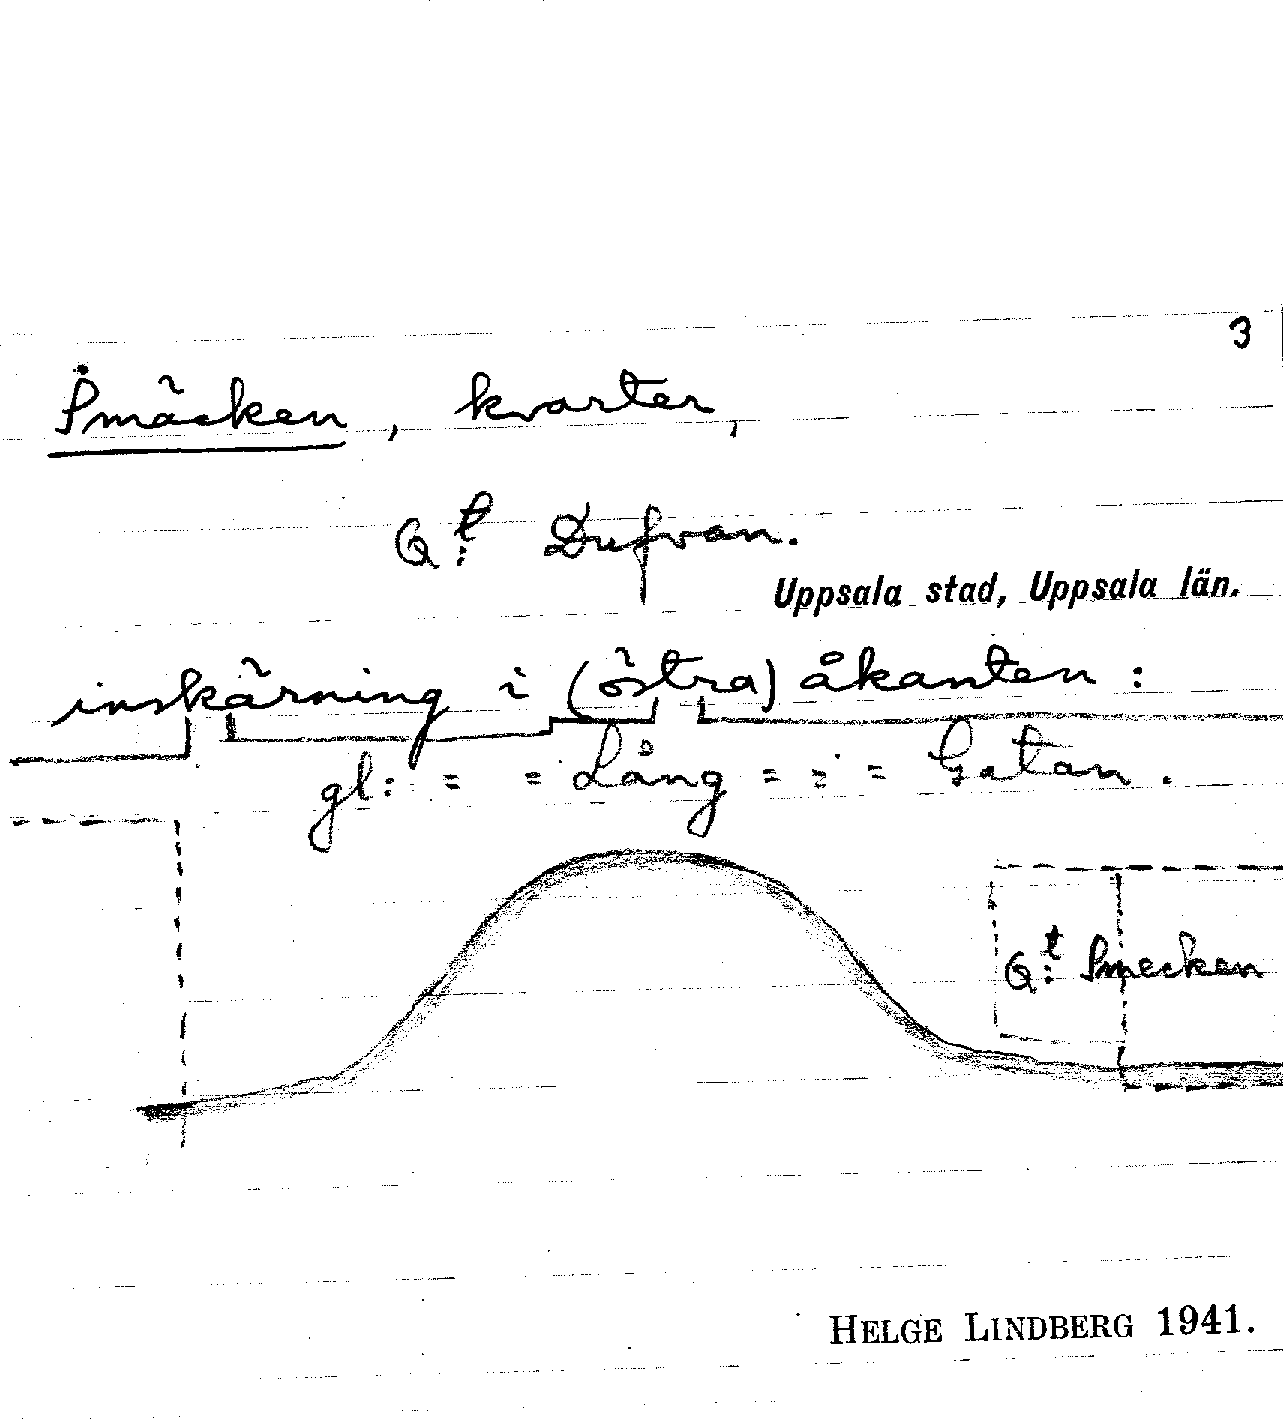 3
Smäcken, kvarter,
Q:t Dufvan.
Uppsala stad, Uppsala län.
inskärning i (östra) åkanten:
gl: = = Lång = = = Gatan.
Q:t Smecken
HELGE LINDBERG 1941.